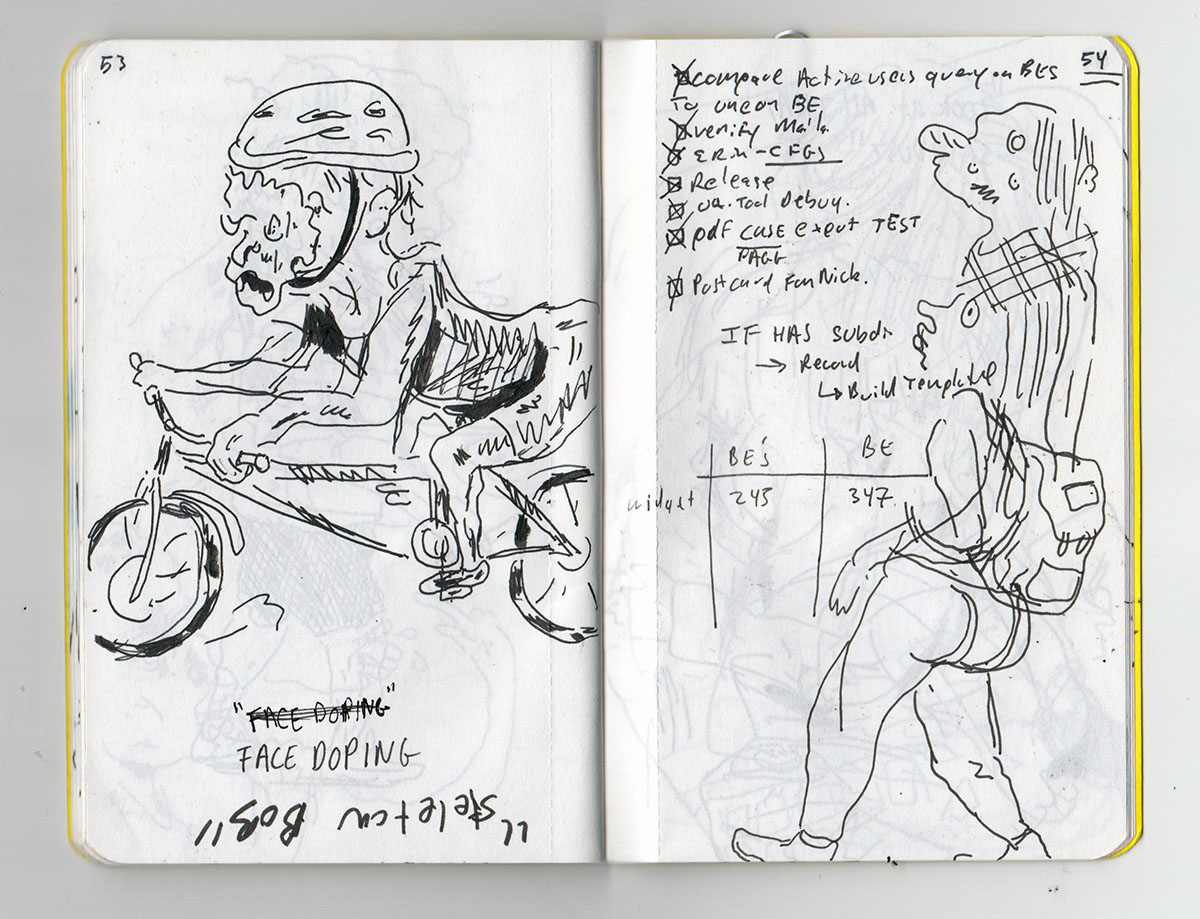 53
"FACE DOPING"
FACE DOPING
"skeleton BOB"
54
compare Active users query on BES
To uncon BE
verify Mails
ERM-CFGS
Release
Tool Debug.
pdf CASE export TEST
PAGG
Postcard Fan Nick.
IF HAS subdir
→ Record
↳ Build Template
BE's BE
widget 245 347